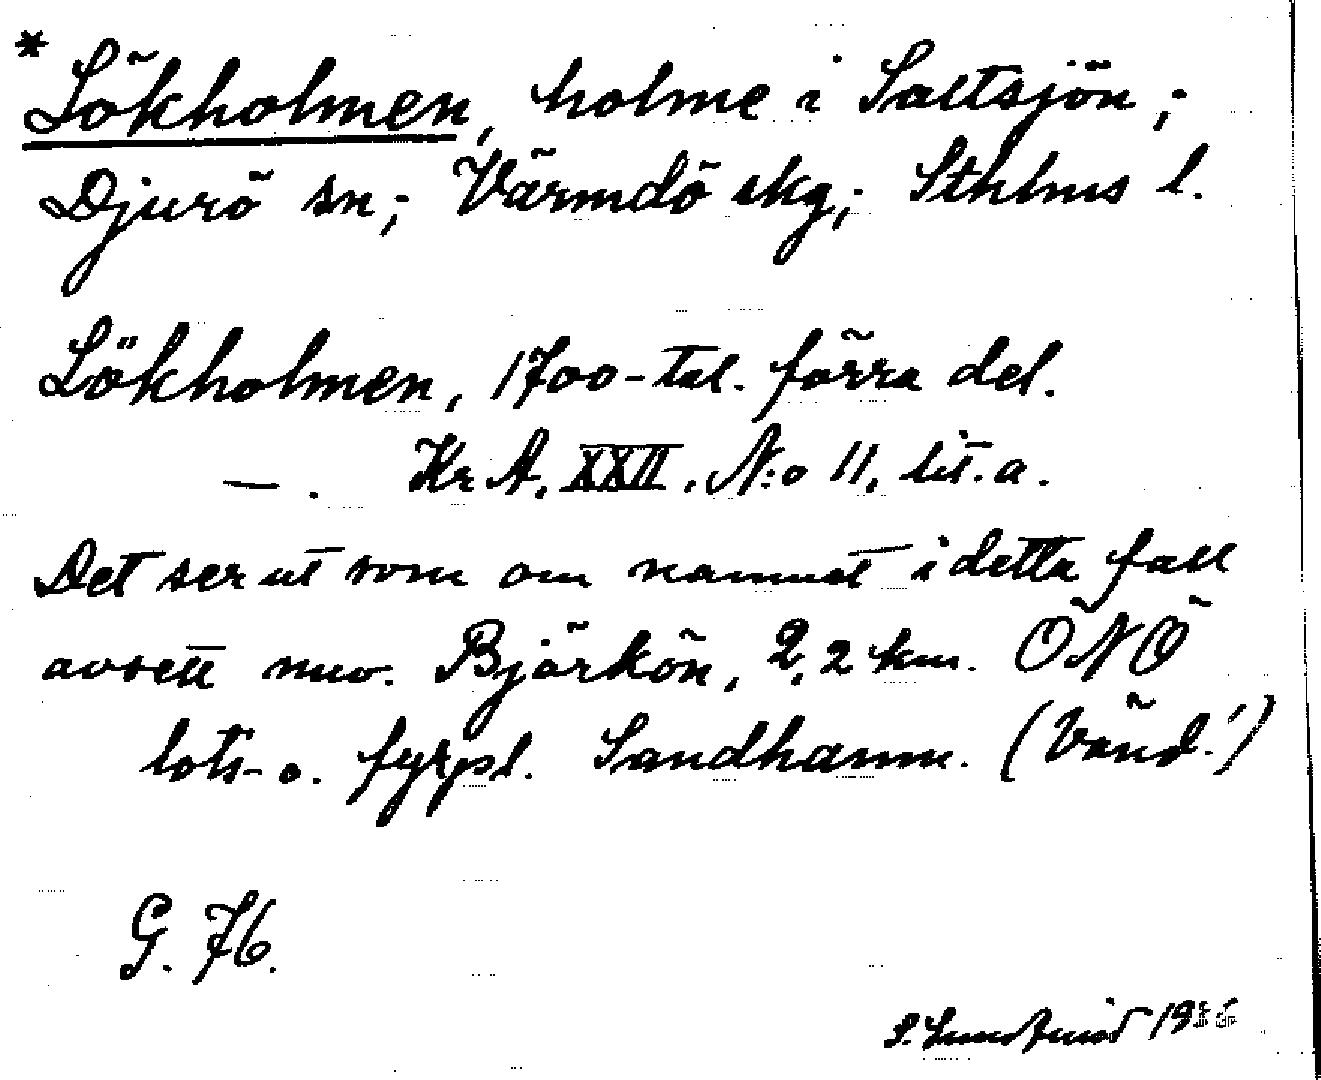 * Lökholmen, holme i Saltsjön;
Djurö sn; Värmdö skg; Sthlms l.
Lökholmen, 1700-tal. förra del.
—. Kr A. XXII. N:o 11, lit. a.
Det ser ut som om namnet i detta fall
avsett nuv. Björkön, 2,2 km. ÖNÖ
lots- o. fyrpl. Sandhamn. (Vänd!)
G. 76.
1936